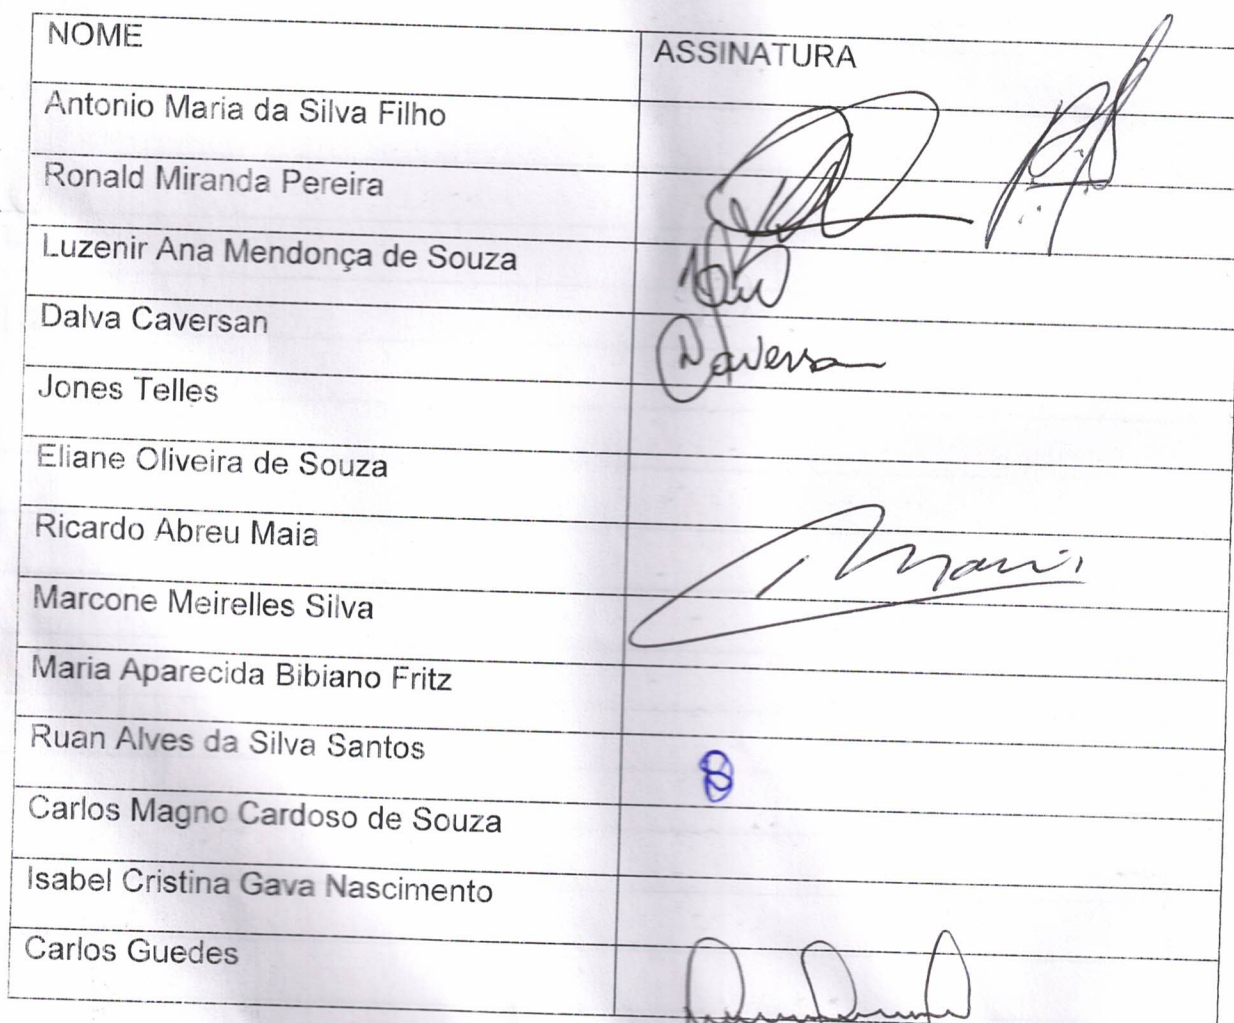 NOME
ASSINATURA
Antonio Maria da Silva Filho
Ronald Miranda Pereira
Luzenir Ana Mendonça de Souza
Dalva Caversan
Jones Telles
Eliane Oliveira de Souza
Ricardo Abreu Maia
Marcone Meirelles Silva
Maria Aparecida Bibiano Fritz
Ruan Alves da Silva Santos
Carlos Magno Cardoso de Souza
Isabel Cristina Gava Nascimento
Carlos Guedes